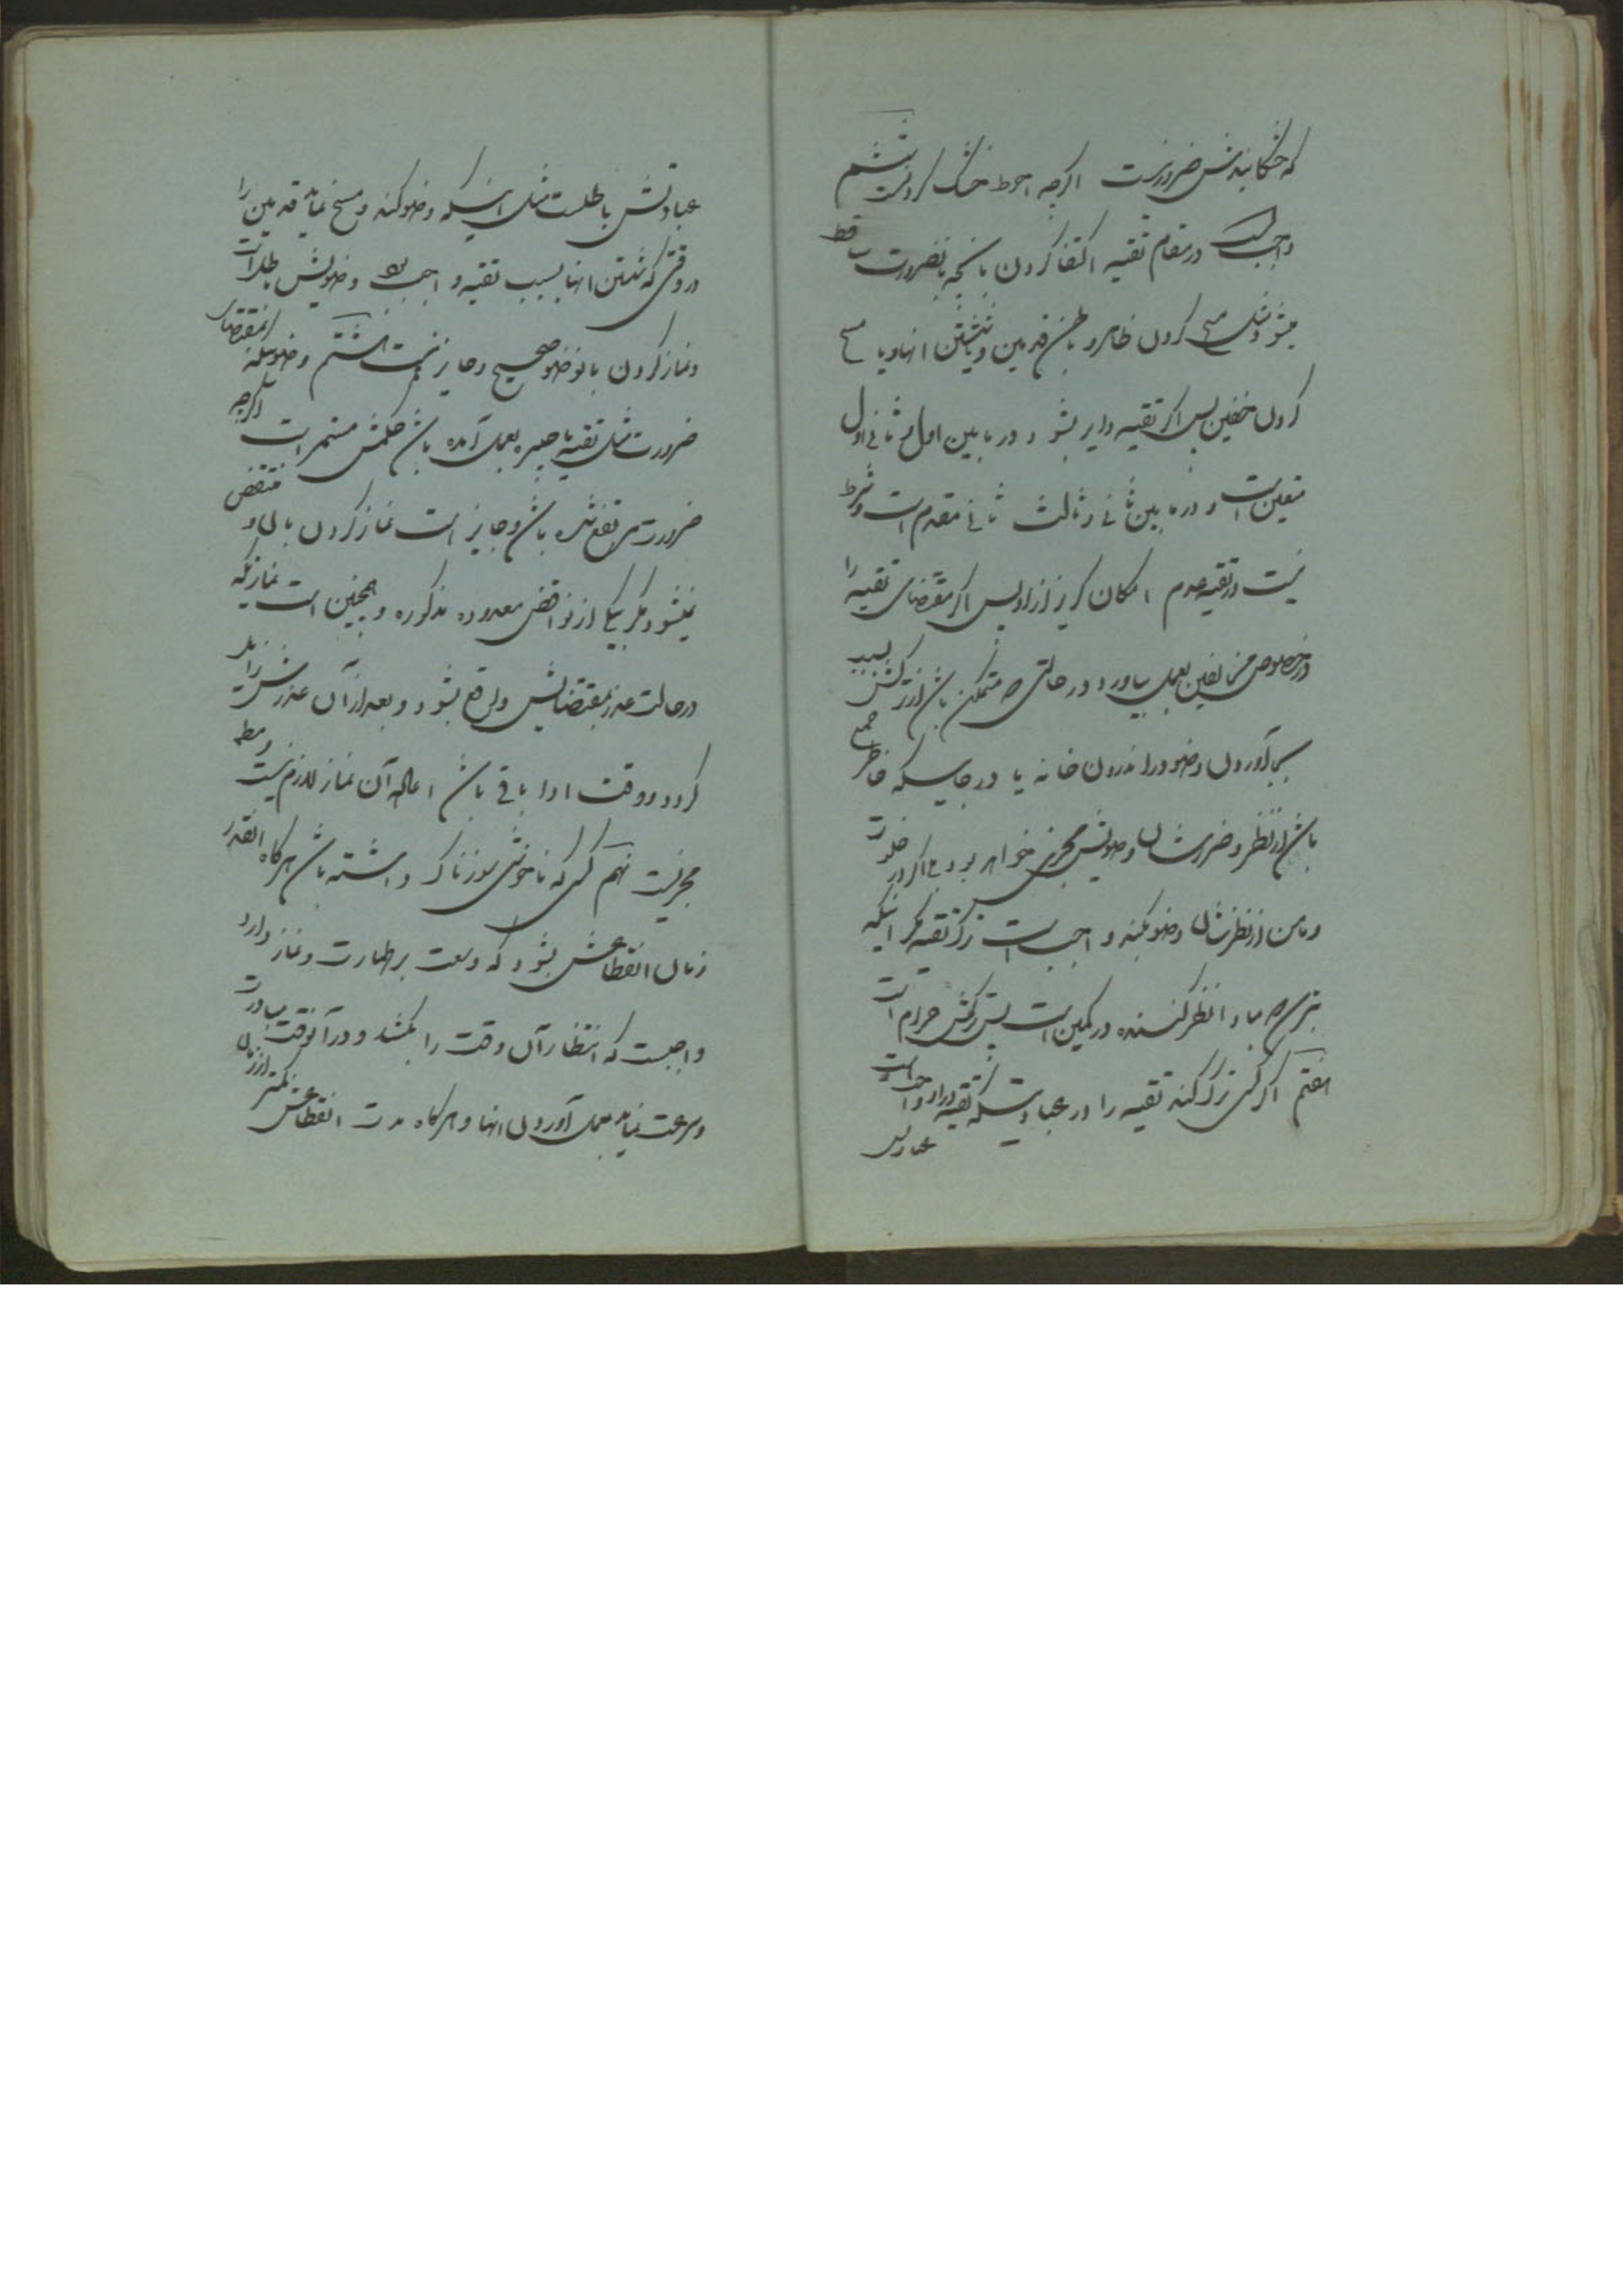 که خشکانیدنش ضرور نیست اگرچه احوط خشک کردنست ششم
واجبست در مقام تقیه اکتفا کردن بآنچه بضرورت ساقط
میشود مثل مسح کردن ظاهر و باطن قدمین و یا شستن انها و یا مسح
کردن خفین پس اگر تقیه دایر بشود در ما بین اول و ثانی اول
متعین است و در ما بین ثانی و ثالث ثانی مقدم است و شرط
نیست در تقیه عدم امکان گریز از او پس اگر مقتضای تقیه را
در خصوص مخالفین بعمل بیاورد در حالتی که متمکن باشد از ترکش بسبب
بجا آوردن وضو در اندرون خانه یا در جاییکه خاطر جمع
باشد از نظر و ضرر ایشان وضویش مجزی خواهد بود بلی اگر در خلوت
و مامن از نظر ایشان وضو بکند واجب است ترک تقیه مگر اینکه
بترسد که مبادا نظر کننده در کمین است پس ترکش حرام است
هفتم اگر کسی ترک کند تقیه را در عبادتیکه تقیه در او واجب است
عبادتش
عبادتش باطلست مثل اینکه وضو کند و مسح نماید قدمین را
در وقتی که شستن انها بسبب تقیه واجب بود وضویش باطل است
و نماز کردن بانوضو صحیح و جایز نیست هشتم وضوییکه بمقتضای
ضرورت مثل تقیه یا جبیره بعمل آمده باشد حکمش مستمر است اگرچه
ضرورت مرتفع شده باشد و جایز است نماز کردن با او و منتقض
نمیشود مگر بیکی از نواقض معدوده مذکوره و همچنین است نمازیکه
در حالت عذر بمقتضایش واقع بشود و بعد از آن عذرش زایل
گردد و وقت ادا باقی باشد اعاده آن نماز لازم نیست
نهم کسی که ناخوشی داشته باشد هرگاه انقدر
زمان انقطاعش بشود که وسعت بر طهارت و نماز دارد
واجبست که انتظار آن وقت را بکشد و در آنوقت مبادرت
و سرعت نماید بعمل آوردن انها و هرگاه مدت انقطاعش کمتر از زمان